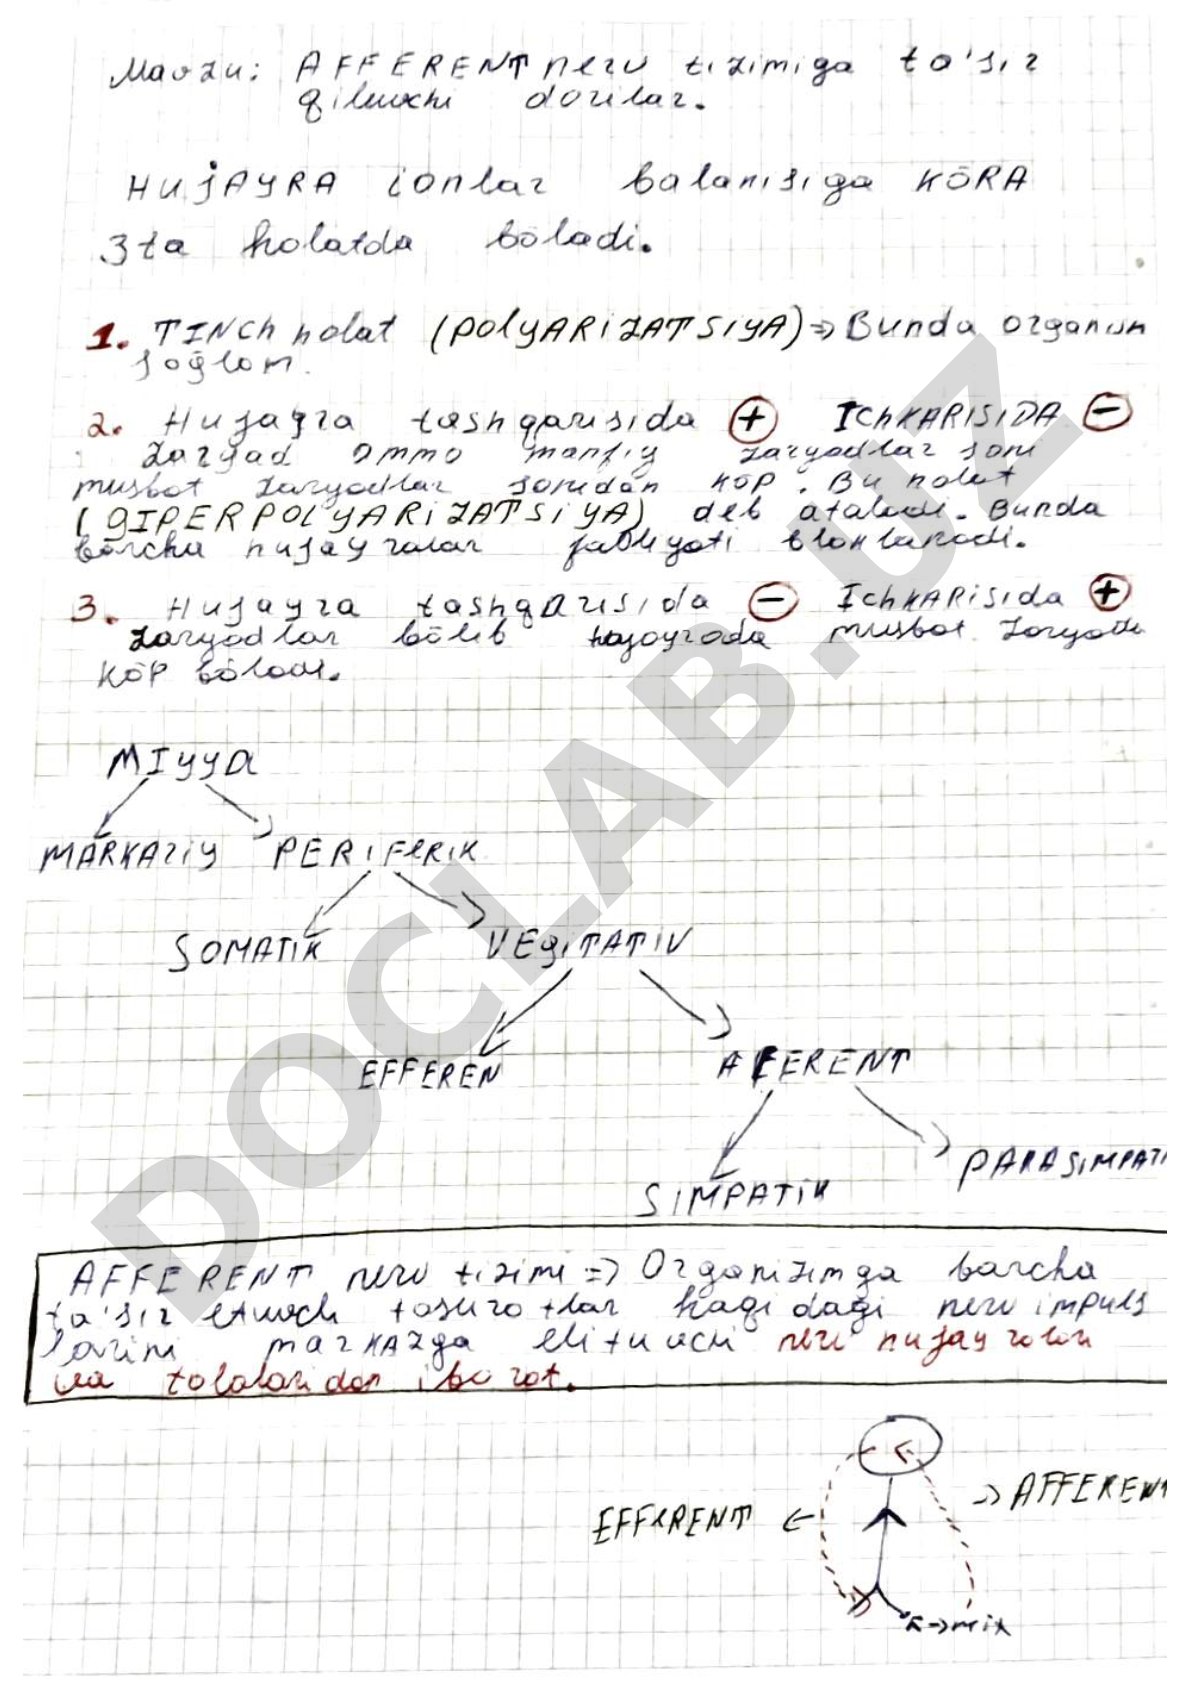 Mavzu: AFFERENT nerv tizimiga ta'sir
qiluvchi dorilar.
HUJAYRA ionlar balansiga KŌRA
3ta holatda bōladi.
1. TINCh holat (POlYARIZATSIYA) => Bunda organizm
soğlom.
2. Hujayra tashqarisida + IChKARISIDA -
Zaryad ammo manfiy zaryadlar soni
musbat zaryadlar sonidan KōP. Bu holat
(GIPERPOLYARIZATSIYA) deb ataladi. Bunda
barcha hujayralar faoliyati bloklanadi.
3. Hujayra tashqarisida - IchKARisida +
zaryadlar bōlib hujayrada musbat zaryad
KōP bōladi.
MIYYA
MARKAZIY PERIFERIK
SOMATIK VEGITATIV
EFFEREN AFERENT
SIMPATIK PARASIMPATI
AFFERENT nerv tizimi => Organizmga barcha
ta'sir etuvchi tasurotlar haqidagi nerv impuls
larini markazga elituvchi nerv hujayralari
va tolalaridan iborat.
EFFERENT <- -> AFFERENT
mix
DOCLAB.UZ